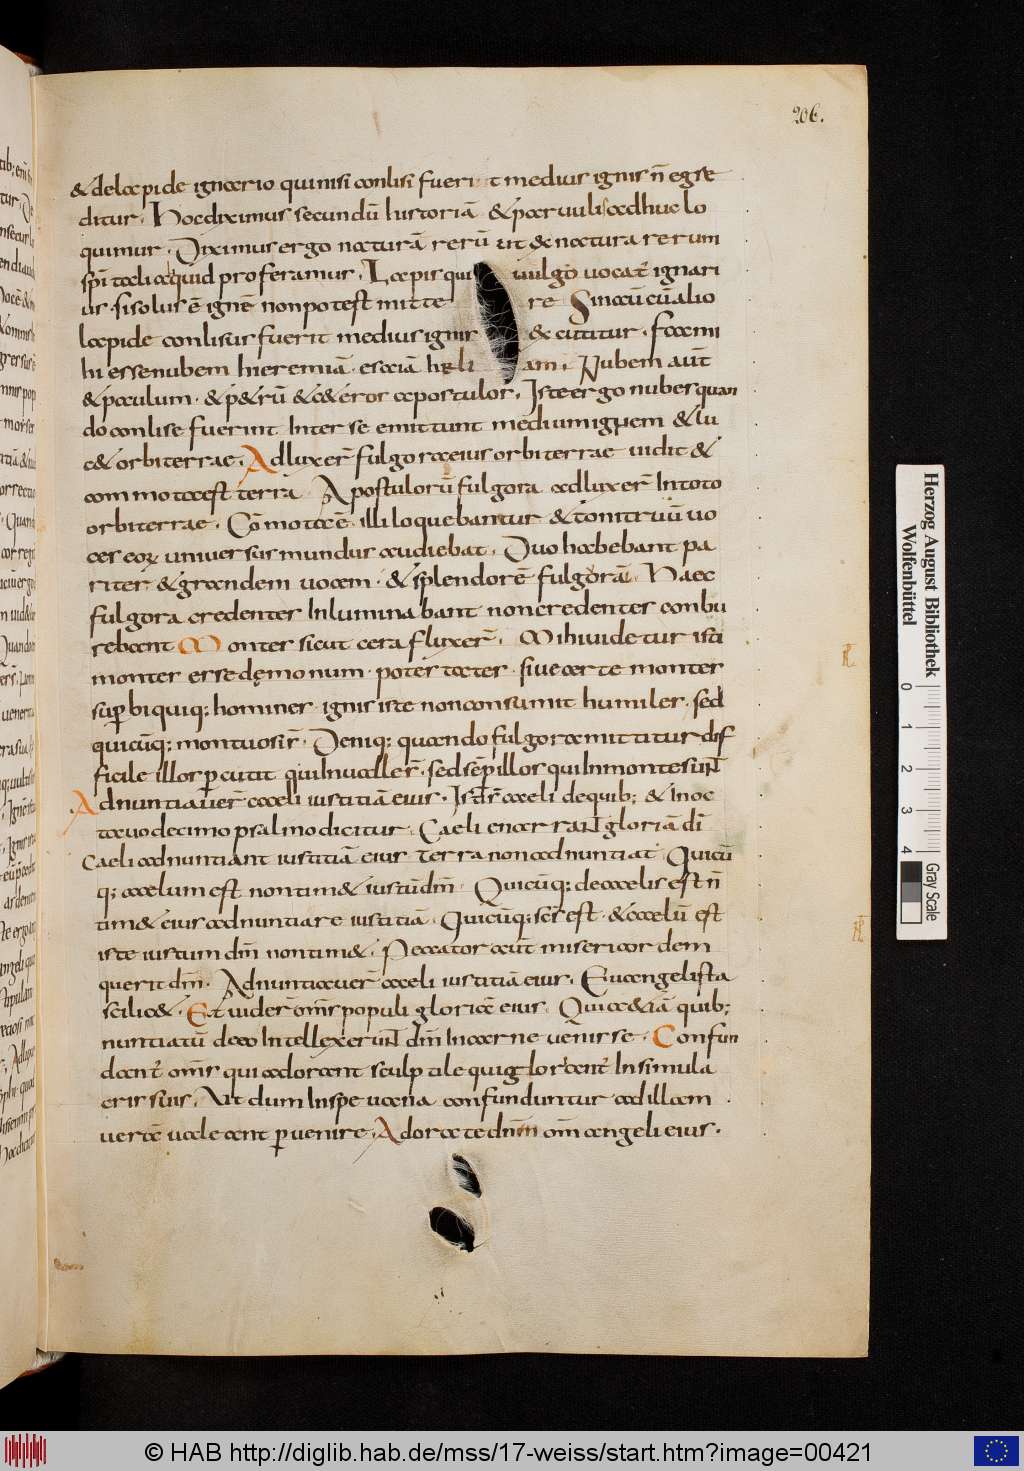 206.
& delapide ignario qui nisi conlisi fuerint medius ignis n̄ egre
ditur. Hoc diximus secundū historiā & paruulis adhuc lo
quimur. Diximus ergo naturā rerū ut & natura rerum
sp̄i tali aliquid proferamus. Lapis qui uulgo uocat̄ ignari
us. si solus ē ignē non potest mitte re Si naū cū alio
lapide conlisus fuerit medius ignis & cutitur. fac mi
hi esse nubem hieremiā. esaiā heli am. Nubem aūt
& paulum. & p&rū & c&eros apostulos. Iste ergo nubes quan
do conlise fuerint Inter se emittunt medium ignem & lu
c& orbi terrae. Adluxer̄ fulgora eius orbi terrae uidit &
commota est terra Apostulorū fulgora adluxer̄ In toto
orbi terrae. Cōmota ē. illi loquebantur & tonitruū uo
ces eoꝝ uniuersus mundus audiebat. Duo habebant pa
riter. & grandem uocem. & splendorē fulgorā. Haec
fulgora credentes Inluminabant non credentes conbu
rebant Montes sicut cera fluxer̄. Mihi uidetur isti
montes esse dęmonum. potestates. siue certe montes
suꝑbi quiq; homines. ignis iste non consumit humiles. sed
quicūq; montuosi s̄. Deniq; quando fulgora mittitur dif
ficile illos ꝑcutit qui In ualle s̄. sed semꝑ illos qui In monte sunt
Adnuntiauer̄ caeli iustitiā eius. Isti s̄ caeli de quib; & in oc
tauo decimo psalmo dicitur. Caeli enarrant gloriā dī
Caeli adnuntiant iustitiā eius Terra non adnuntiat Quicū
q; caelum est non tim& iustū dm̄. Quicūq; de caelis est n̄
tim& eius adnuntiare iustitiā. Quicūq; scs̄ est. & caelū est
iste iustum dm̄ non tim&. Peccator aūt misericordem
querit dm̄. Adnuntiauer̄ caeli iustitiā eius. Euangelista
scilic&. Et uider̄ om̄s populi gloriā eius. Qui a &iā quib;
nuntiatū deo Intellexerunt dm̄ In carne uenisse. Confun
dant̄ om̄s qui adorant sculptile qui gloriant̄ In simula
cris suis. Ut dum In spe uana confunduntur ad illam
uerā ualeant ꝑuenire. Adorate dnm̄ om̄ angeli eius.
Herzog August Bibliothek
Wolfenbüttel
0 1 2 3 4
Gray Scale
© HAB http://diglib.hab.de/mss/17-weiss/start.htm?image=00421